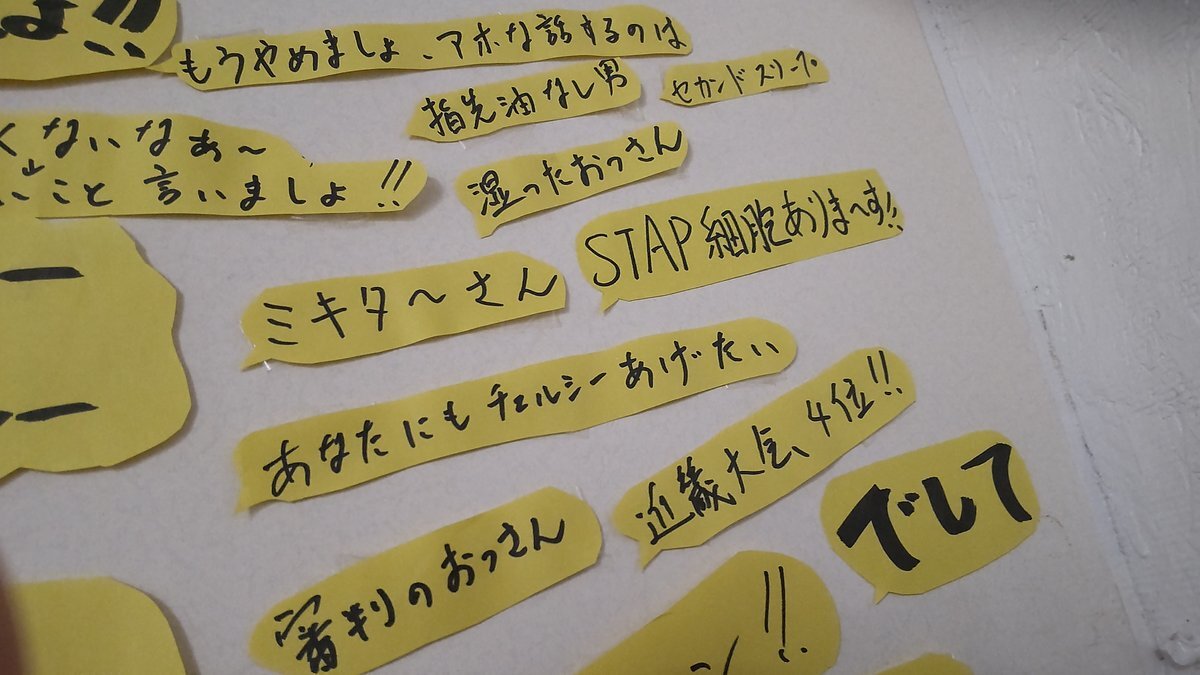 よ!!
もうやめましょ、アホな話するのは
指先油なし男
セカンドスリープ
くないなぁ〜
いこと言いましょ!!
湿ったおっさん
STAP細胞ありま〜す!!
ミキタ〜さん
あなたにもチェルシーあげたい
近畿大会、4位!!
でして
審判のおっさん
ン!!